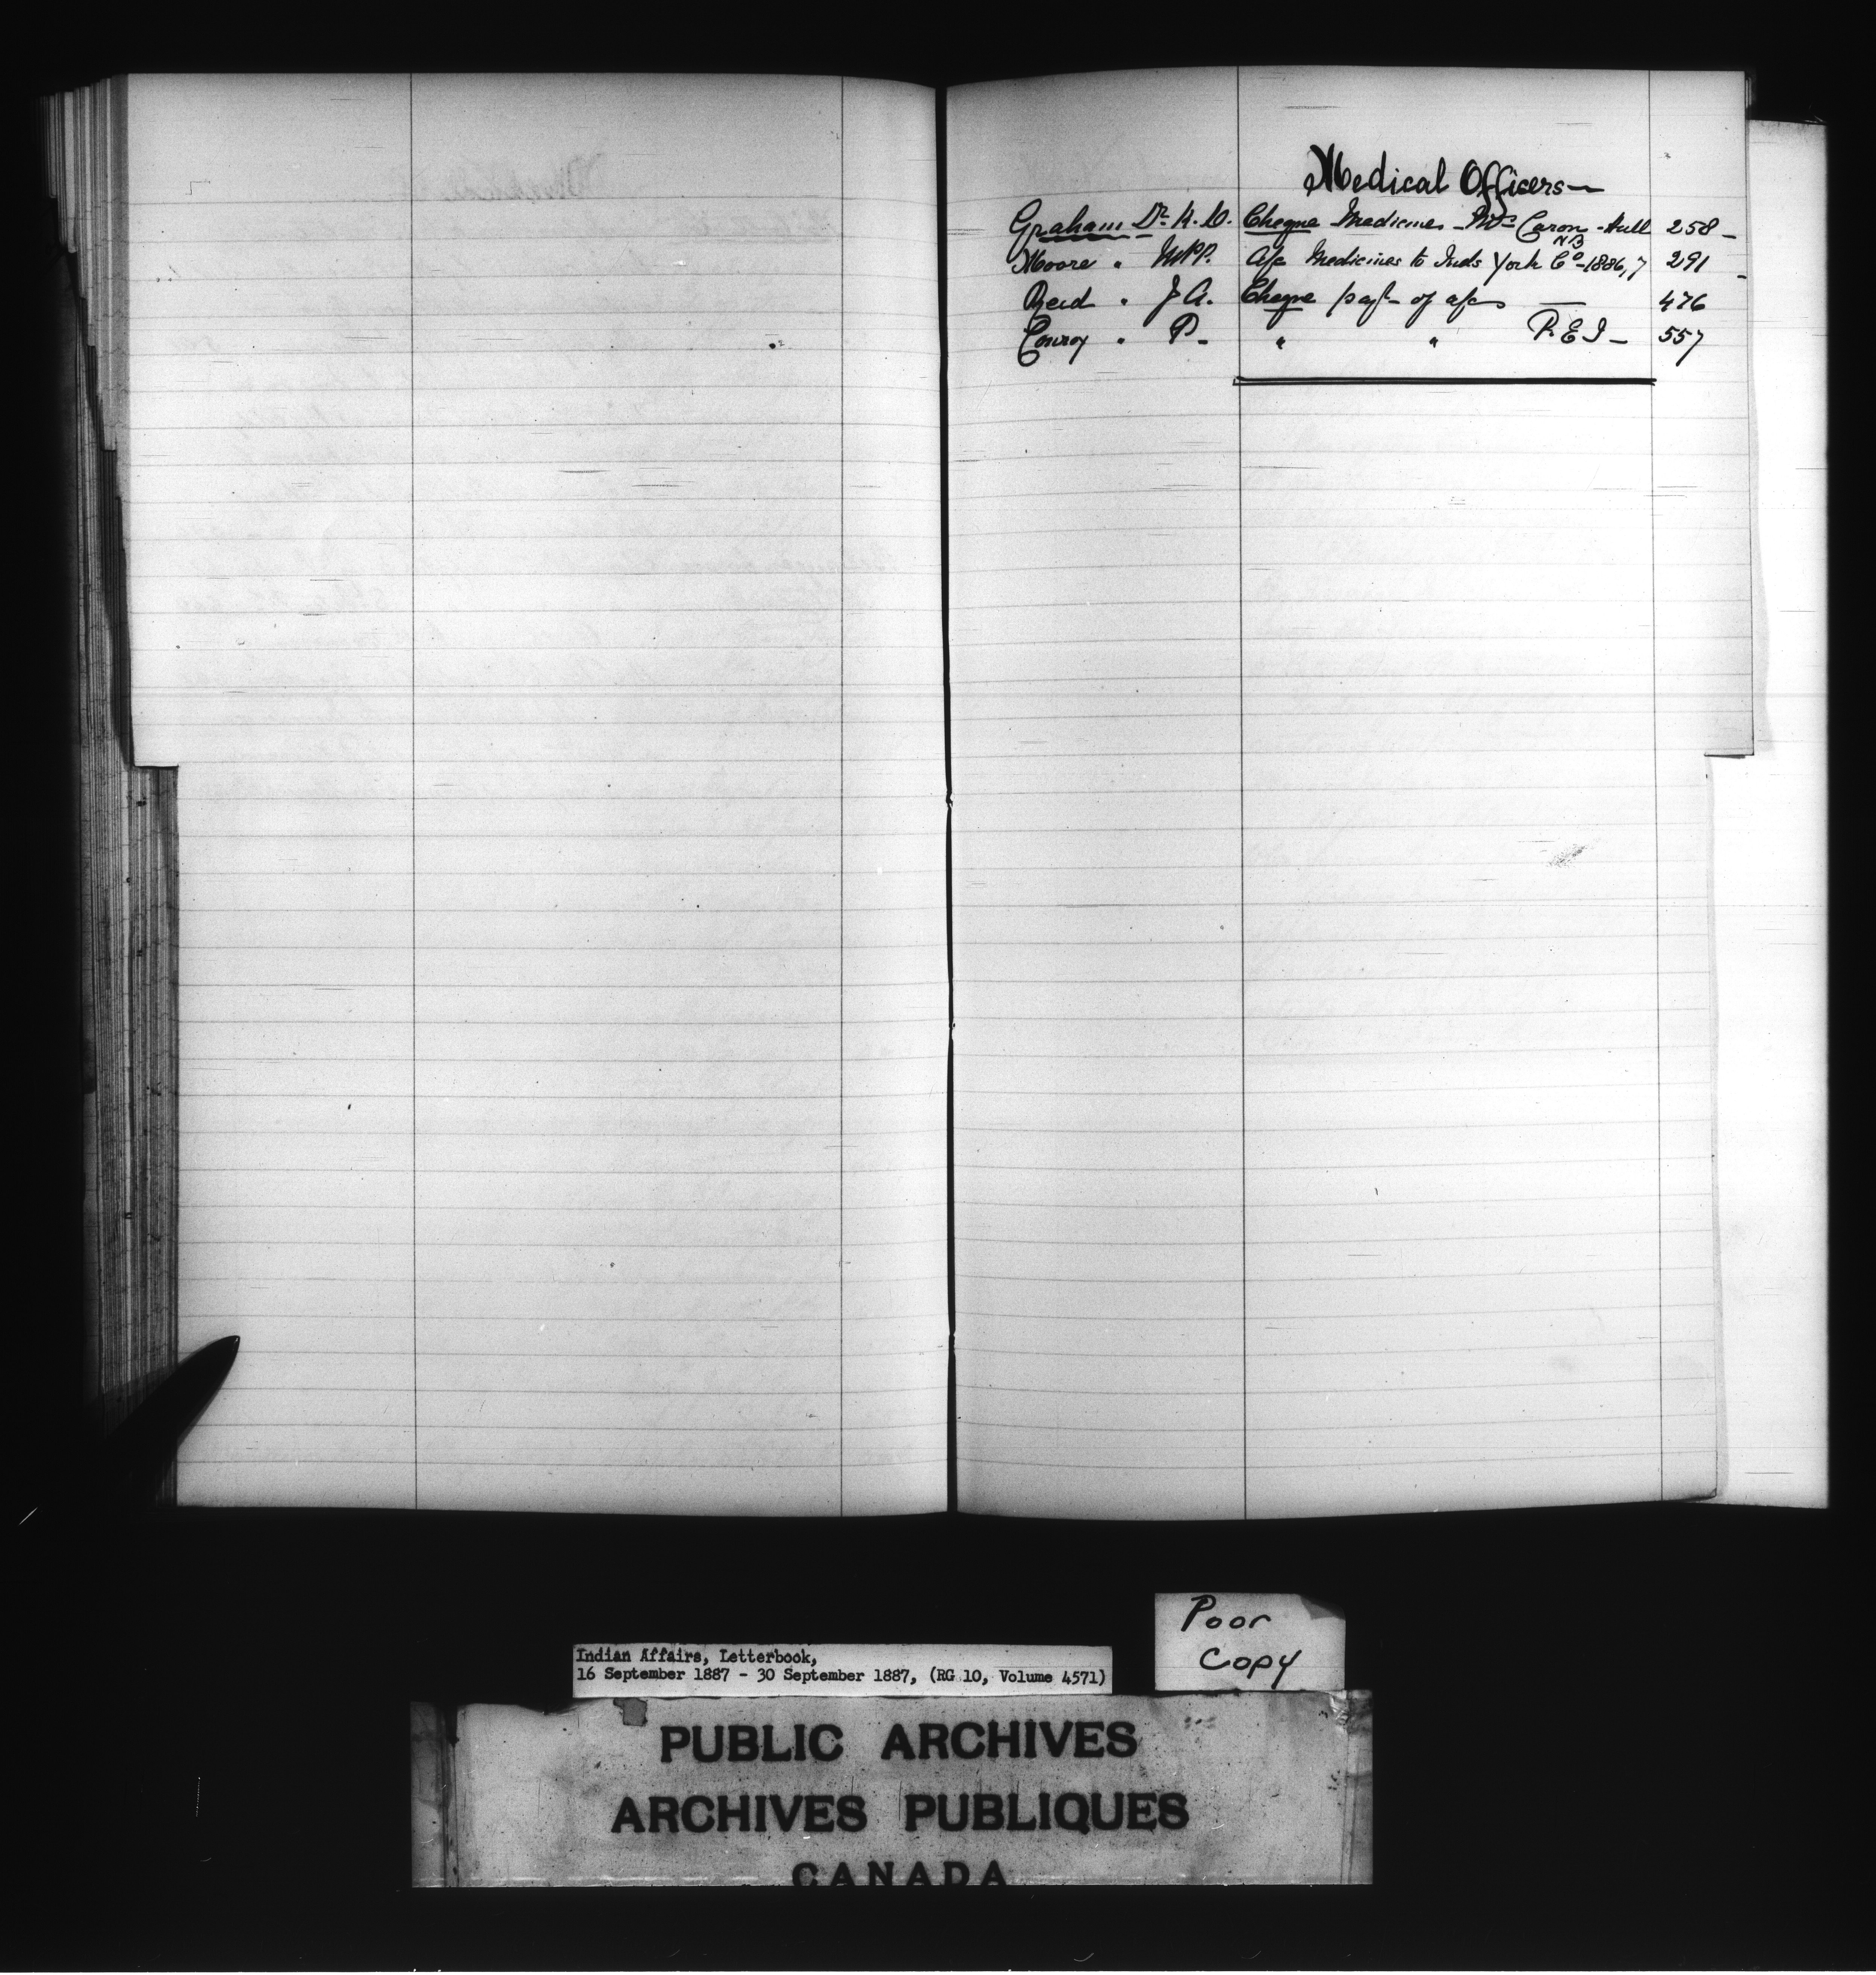 Medical Officers—
Graham Dr. K. D. Cheque Medicines - Mrs Caron - Hull 258 -
N B
Moore " MPP. A/c Medicines to Inds York Co - 1886,7 291 -
Reid " J A. Cheque payt of a/cs — 476
Conroy " P - " " P. E I - 557
Poor
Copy
Indian Affairs, Letterbook,
16 September 1887 - 30 September 1887, (RG 10, Volume 4571)
PUBLIC ARCHIVES
ARCHIVES PUBLIQUES
CANADA